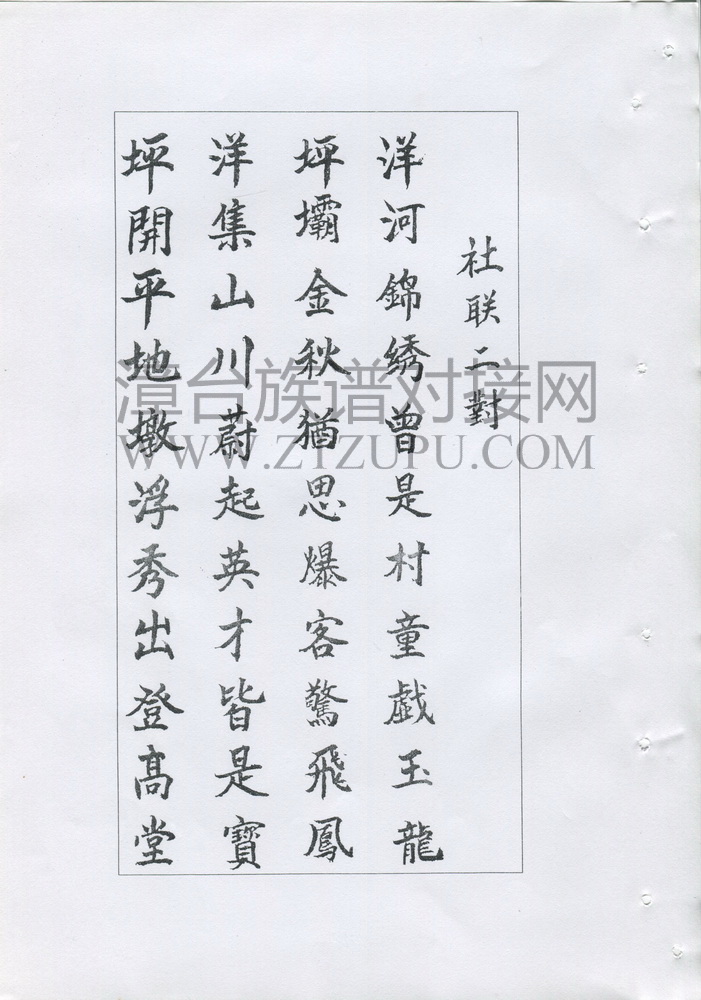 社联二對
洋河錦綉曾是村童戯玉龍
坪壩金秋猶思爆客驚飛鳳
洋集山川蔚起英才皆是寶
坪開平地墩浮秀出登高堂
漳台族谱对接网
WWW.ZTZUPU.COM